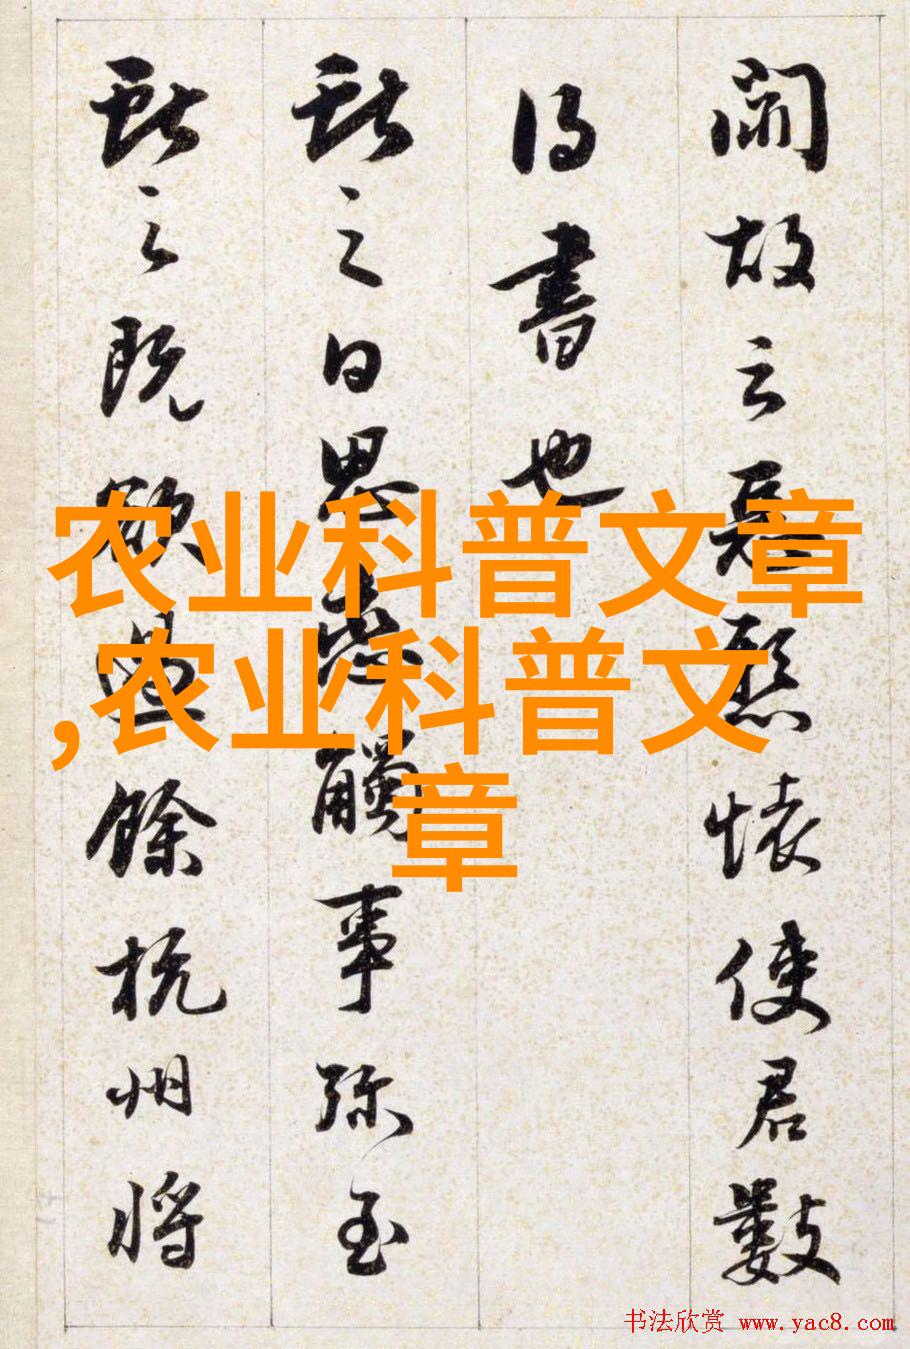 农业科普文章
,农业科普文
章
故 懸懷使君數
得書也
之日思戀觸事弥至
之既欲過餘杭州將
书法欣赏 www.yac8.com